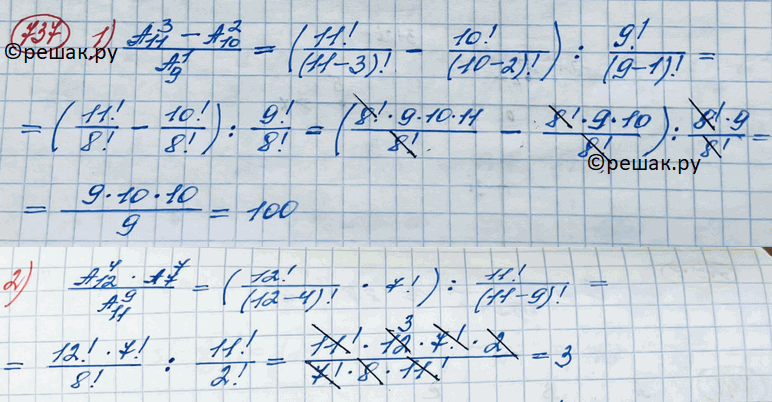 737 1) (A₁₁³ − A₁₀²) / A₉¹ = (11! / (11−3)! − 10! / (10−2)!) : 9! / (9−1)! =
©решак.ру
= (11! / 8! − 10! / 8!) : 9! / 8! = (8! · 9 · 10 · 11 / 8! − 8! · 9 · 10 / 8!) : 8! · 9 / 8! =
©решак.ру
= 9 · 10 · 10 / 9 = 100
2) A₁₂⁴ · A₇⁷ / A₁₁⁹ = (12! / (12−4)! · 7!) : 11! / (11−9)! =
= 12! · 7! / 8! : 11! / 2! = 11! · 12 · 7! · 2 / 7! · 8 · 11! = 3
3